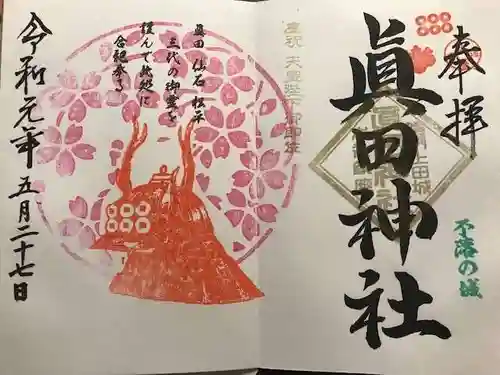 奉拝
眞田神社
不落の城
奉祝 天皇陛下御即位
眞田 仙石 松平
三代の御霊を
謹んで此処に
合祀奉る
令和元年五月二十七日